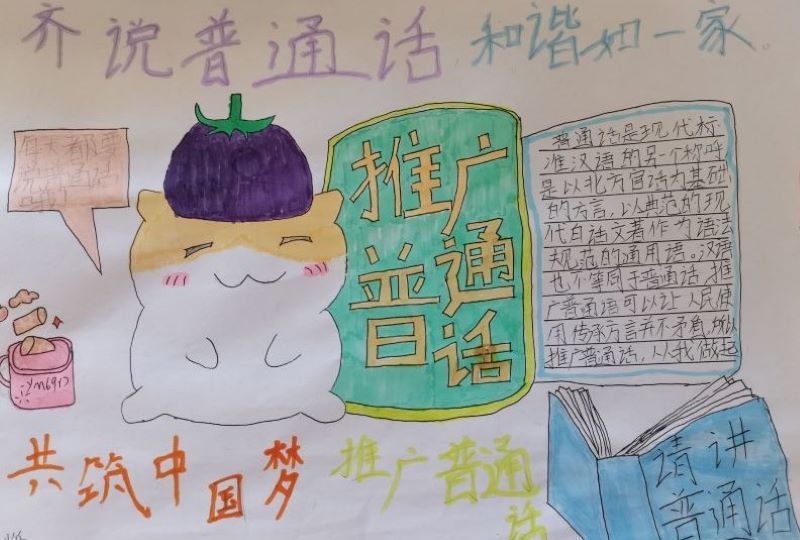 齐说普通话,和谐如一家。
每天都要
说普通话
推广
普通
话
普通话是现代标
准汉语的另一个称呼
是以北方官话为基础
的方言,以典范的现
代白话文著作为语法
规范的通用语。汉语
也不等同于普通话,推
广普通话可以让人民使
用传承方言并不矛盾,所以
推广普通话,从我做起
共筑中国梦
推广普通
话
请讲
普通话